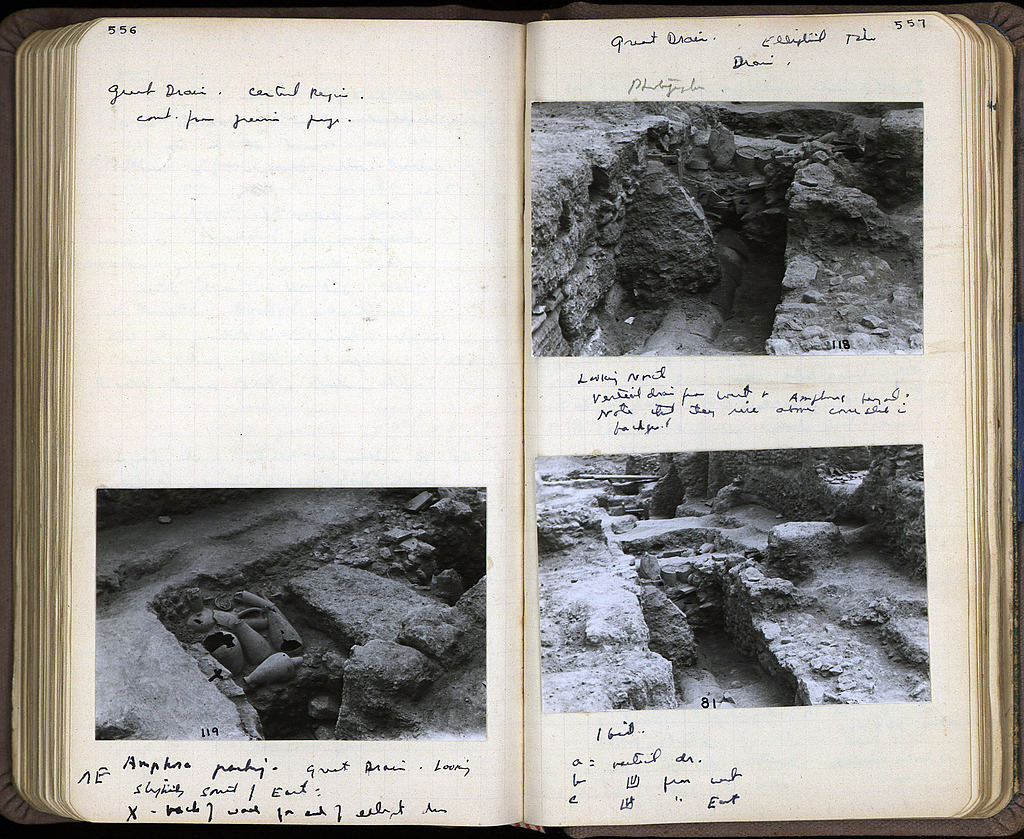 556
Great Drain. Central Region.
cont. from previous page.
119
X
Amphora packing. Great Drain. Looking
slightly South of East:
X - back of wall for end of
557
Great Drain. Elliptical
Drain.
Photographs.
118
Looking North
Vertical drain from west & Amphora beyond.
Note that they rise above cover slab in
backgr.
81
Ibid.
a = vertical dr.
b from west
c " East